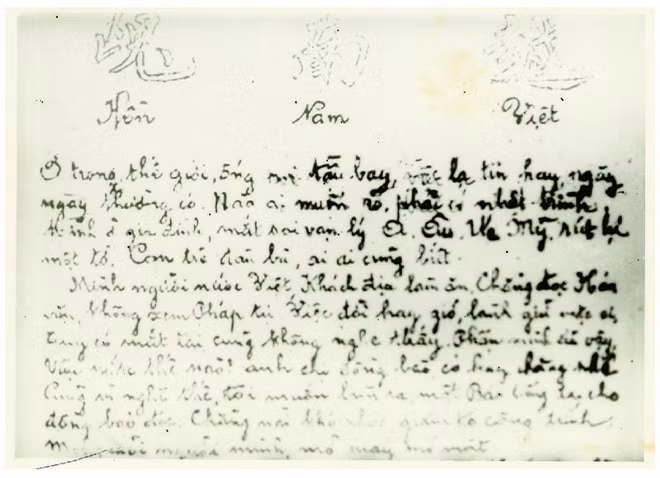 Hồn Nam Việt
Ở trong thế giới, ống nói tầu bay, việc lạ tin hay, ngày
ngày thường có. Nào ai muốn rõ, phải có nhất trình
ở gia đình, mắt soi vạn lý Á. Âu. Mỹ, rút lại
một tờ. Con trẻ đàn bà, ai ai cũng biết.
Mình người nước Việt Khách địa làm ăn, Chẳng đọc Hán
văn, không xem Pháp tự. Việc đời hay gió, lành giữ
có mắt tai cũng không nghe thấy. Phần mình đã vậy,
Vận nước thế nào? anh chị đồng bào có hay chăng
Cũng vì nghĩ thế, tôi muốn ra một Báo cho
đồng bào đọc. Chẳng nài khó nhọc công trình,
người mình, mở mày mở mặt